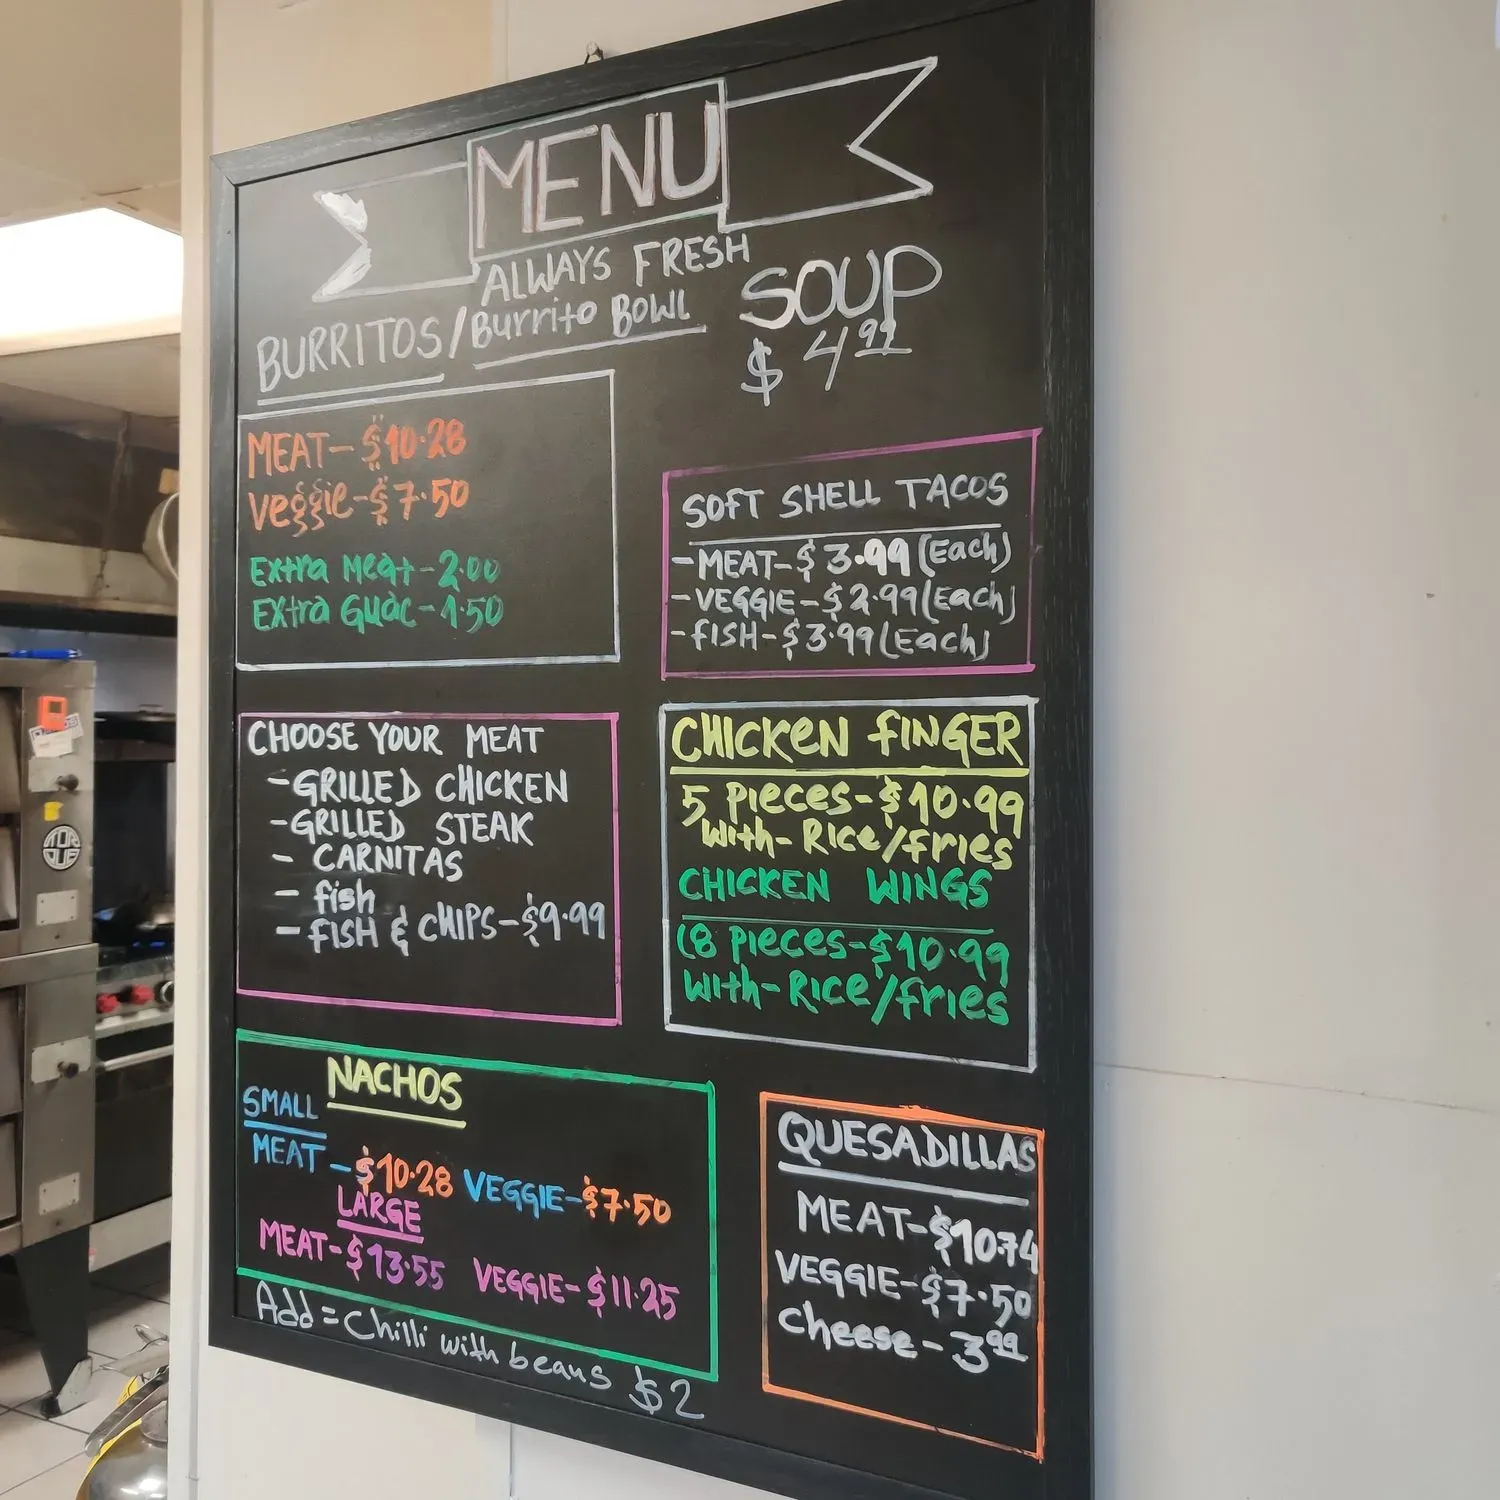 MENU
ALWAYS FRESH
BURRITOS/Burrito BOWL
SOUP
$4.99
MEAT-$10.28
Veggie-$7.50
Extra Meat-2.00
Extra Guac-1.50
SOFT SHELL TACOS
-MEAT-$3.99(Each)
-VEGGIE-$2.99(Each)
-FISH-$3.99(Each)
CHOOSE YOUR MEAT
-GRILLED CHICKEN
-GRILLED STEAK
- CARNITAS
- fish
- FISH & CHIPS-$9.99
CHICKEN FINGER
5 Pieces-$10.99
With-Rice/fries
CHICKEN WINGS
(8 Pieces-$10.99
With-Rice/fries
NACHOS
SMALL
MEAT-$10.28 VEGGIE-$7.50
LARGE
MEAT-$13.55 VEGGIE-$11.25
Add=Chilli with beans $2
QUESADILLAS
MEAT-$10.74
VEGGIE-$7.50
Cheese-3.99